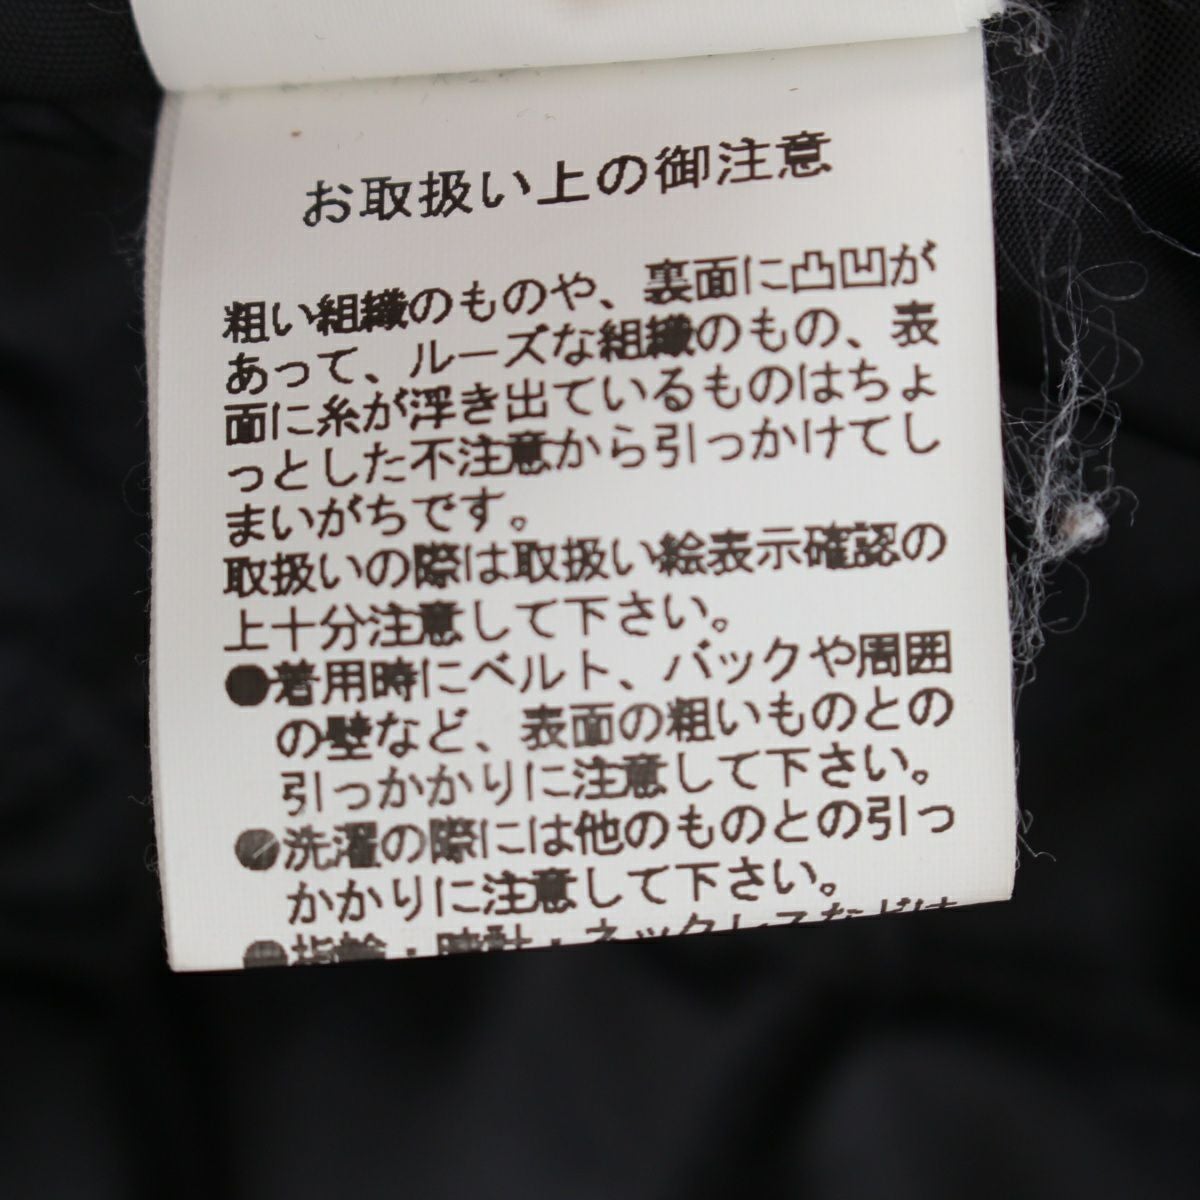 お取扱い上の御注意
粗い組織のものや、裏面に凸凹が
あって、ルーズな組織のもの、表
面に糸が浮き出ているものはちょ
っとした不注意から引っかけてし
まいがちです。
取扱いの際は取扱い絵表示確認の
上十分注意して下さい。
●着用時にベルト、バックや周囲
の壁など、表面の粗いものとの
引っかかりに注意して下さい。
●洗濯の際には他のものとの引っ
かかりに注意して下さい。
●指輪・時計・ネックレスなどは